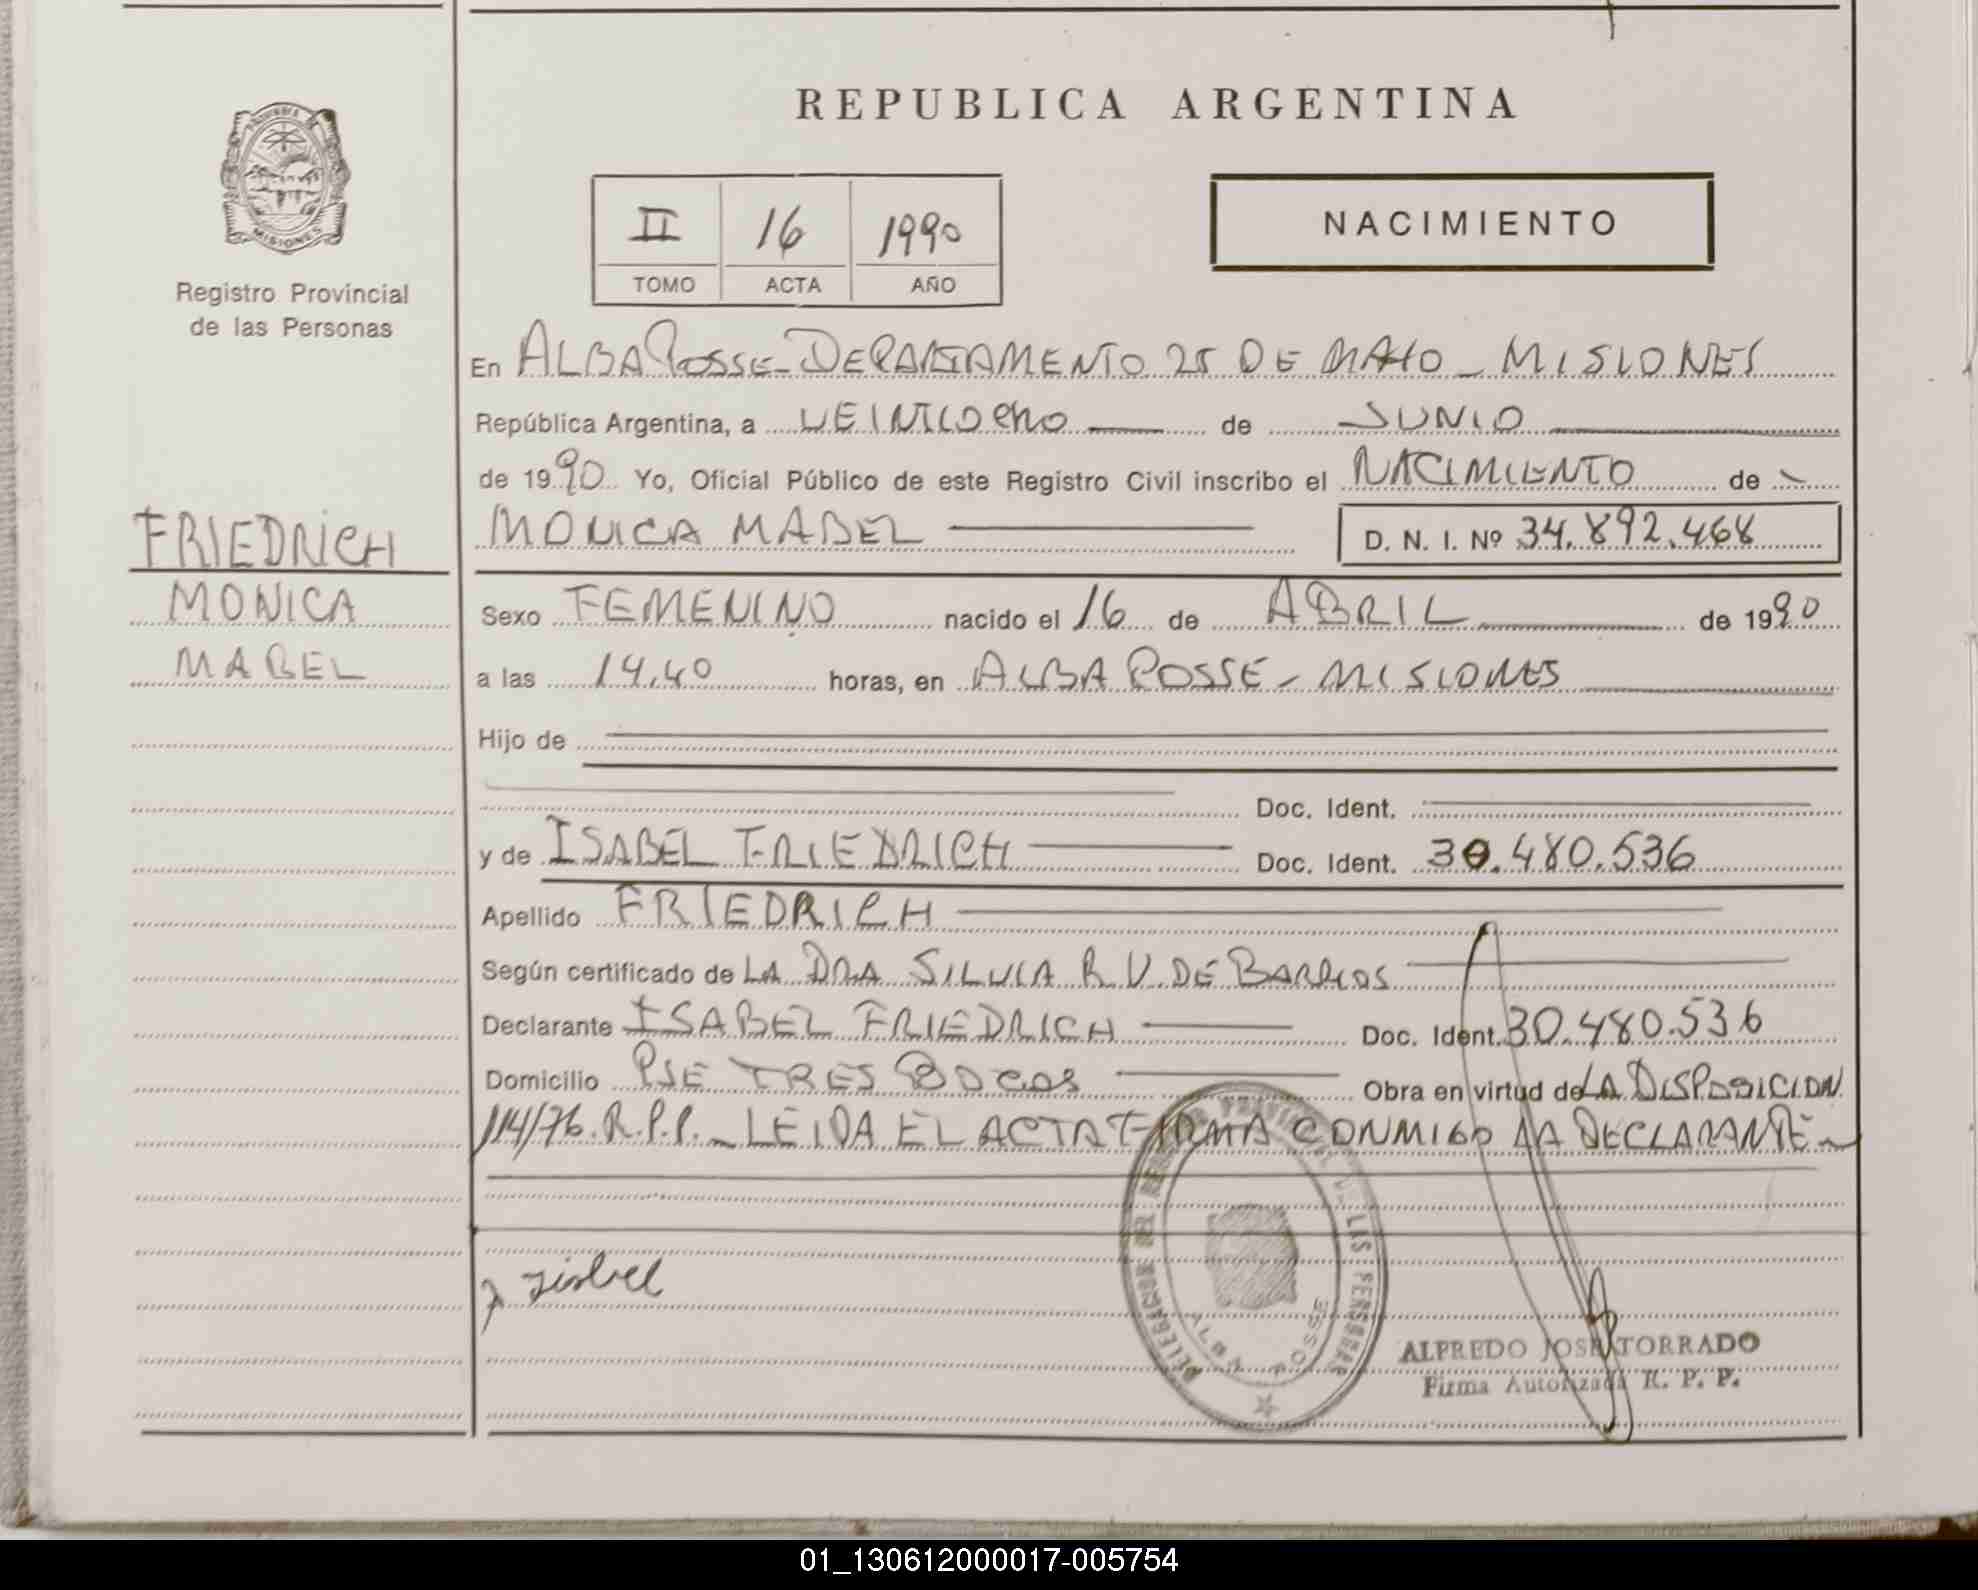 REPUBLICA ARGENTINA
PROVINCIA DE
MISIONES
Registro Provincial
de las Personas
II 16 1990
TOMO ACTA AÑO
NACIMIENTO
En ALBA POSSE - DEPARTAMENTO 25 DE MAYO - MISIONES
República Argentina, a VEINTIOCHO de JUNIO
de 1990 Yo, Oficial Público de este Registro Civil inscribo el NACIMIENTO de
FRIEDRICH
MONICA MABEL D. N. I. Nº 34.892.468
MONICA
Sexo FEMENINO nacido el 16 de ABRIL de 1990
MABEL
a las 14.40 horas, en ALBA POSSE - MISIONES
Hijo de
Doc. Ident.
y de ISABEL FRIEDRICH Doc. Ident. 30.480.536
Apellido FRIEDRICH
Según certificado de LA DRA SILVIA R. V. DE BARRIOS
Declarante ISABEL FRIEDRICH Doc. Ident. 30.480.536
Domicilio PJE TRES BOCAS Obra en virtud de LA DISPOSICION
114/76. R.P.P. - LEIDA EL ACTA FIRMA CONMIGO LA DECLARANTE -
DELEGACION DEL REGISTRO PROVINCIAL DE LAS PERSONAS
ALBA POSSE
ALFREDO JOSE TORRADO
Firma Autorizada R. P. P.
01_130612000017-005754